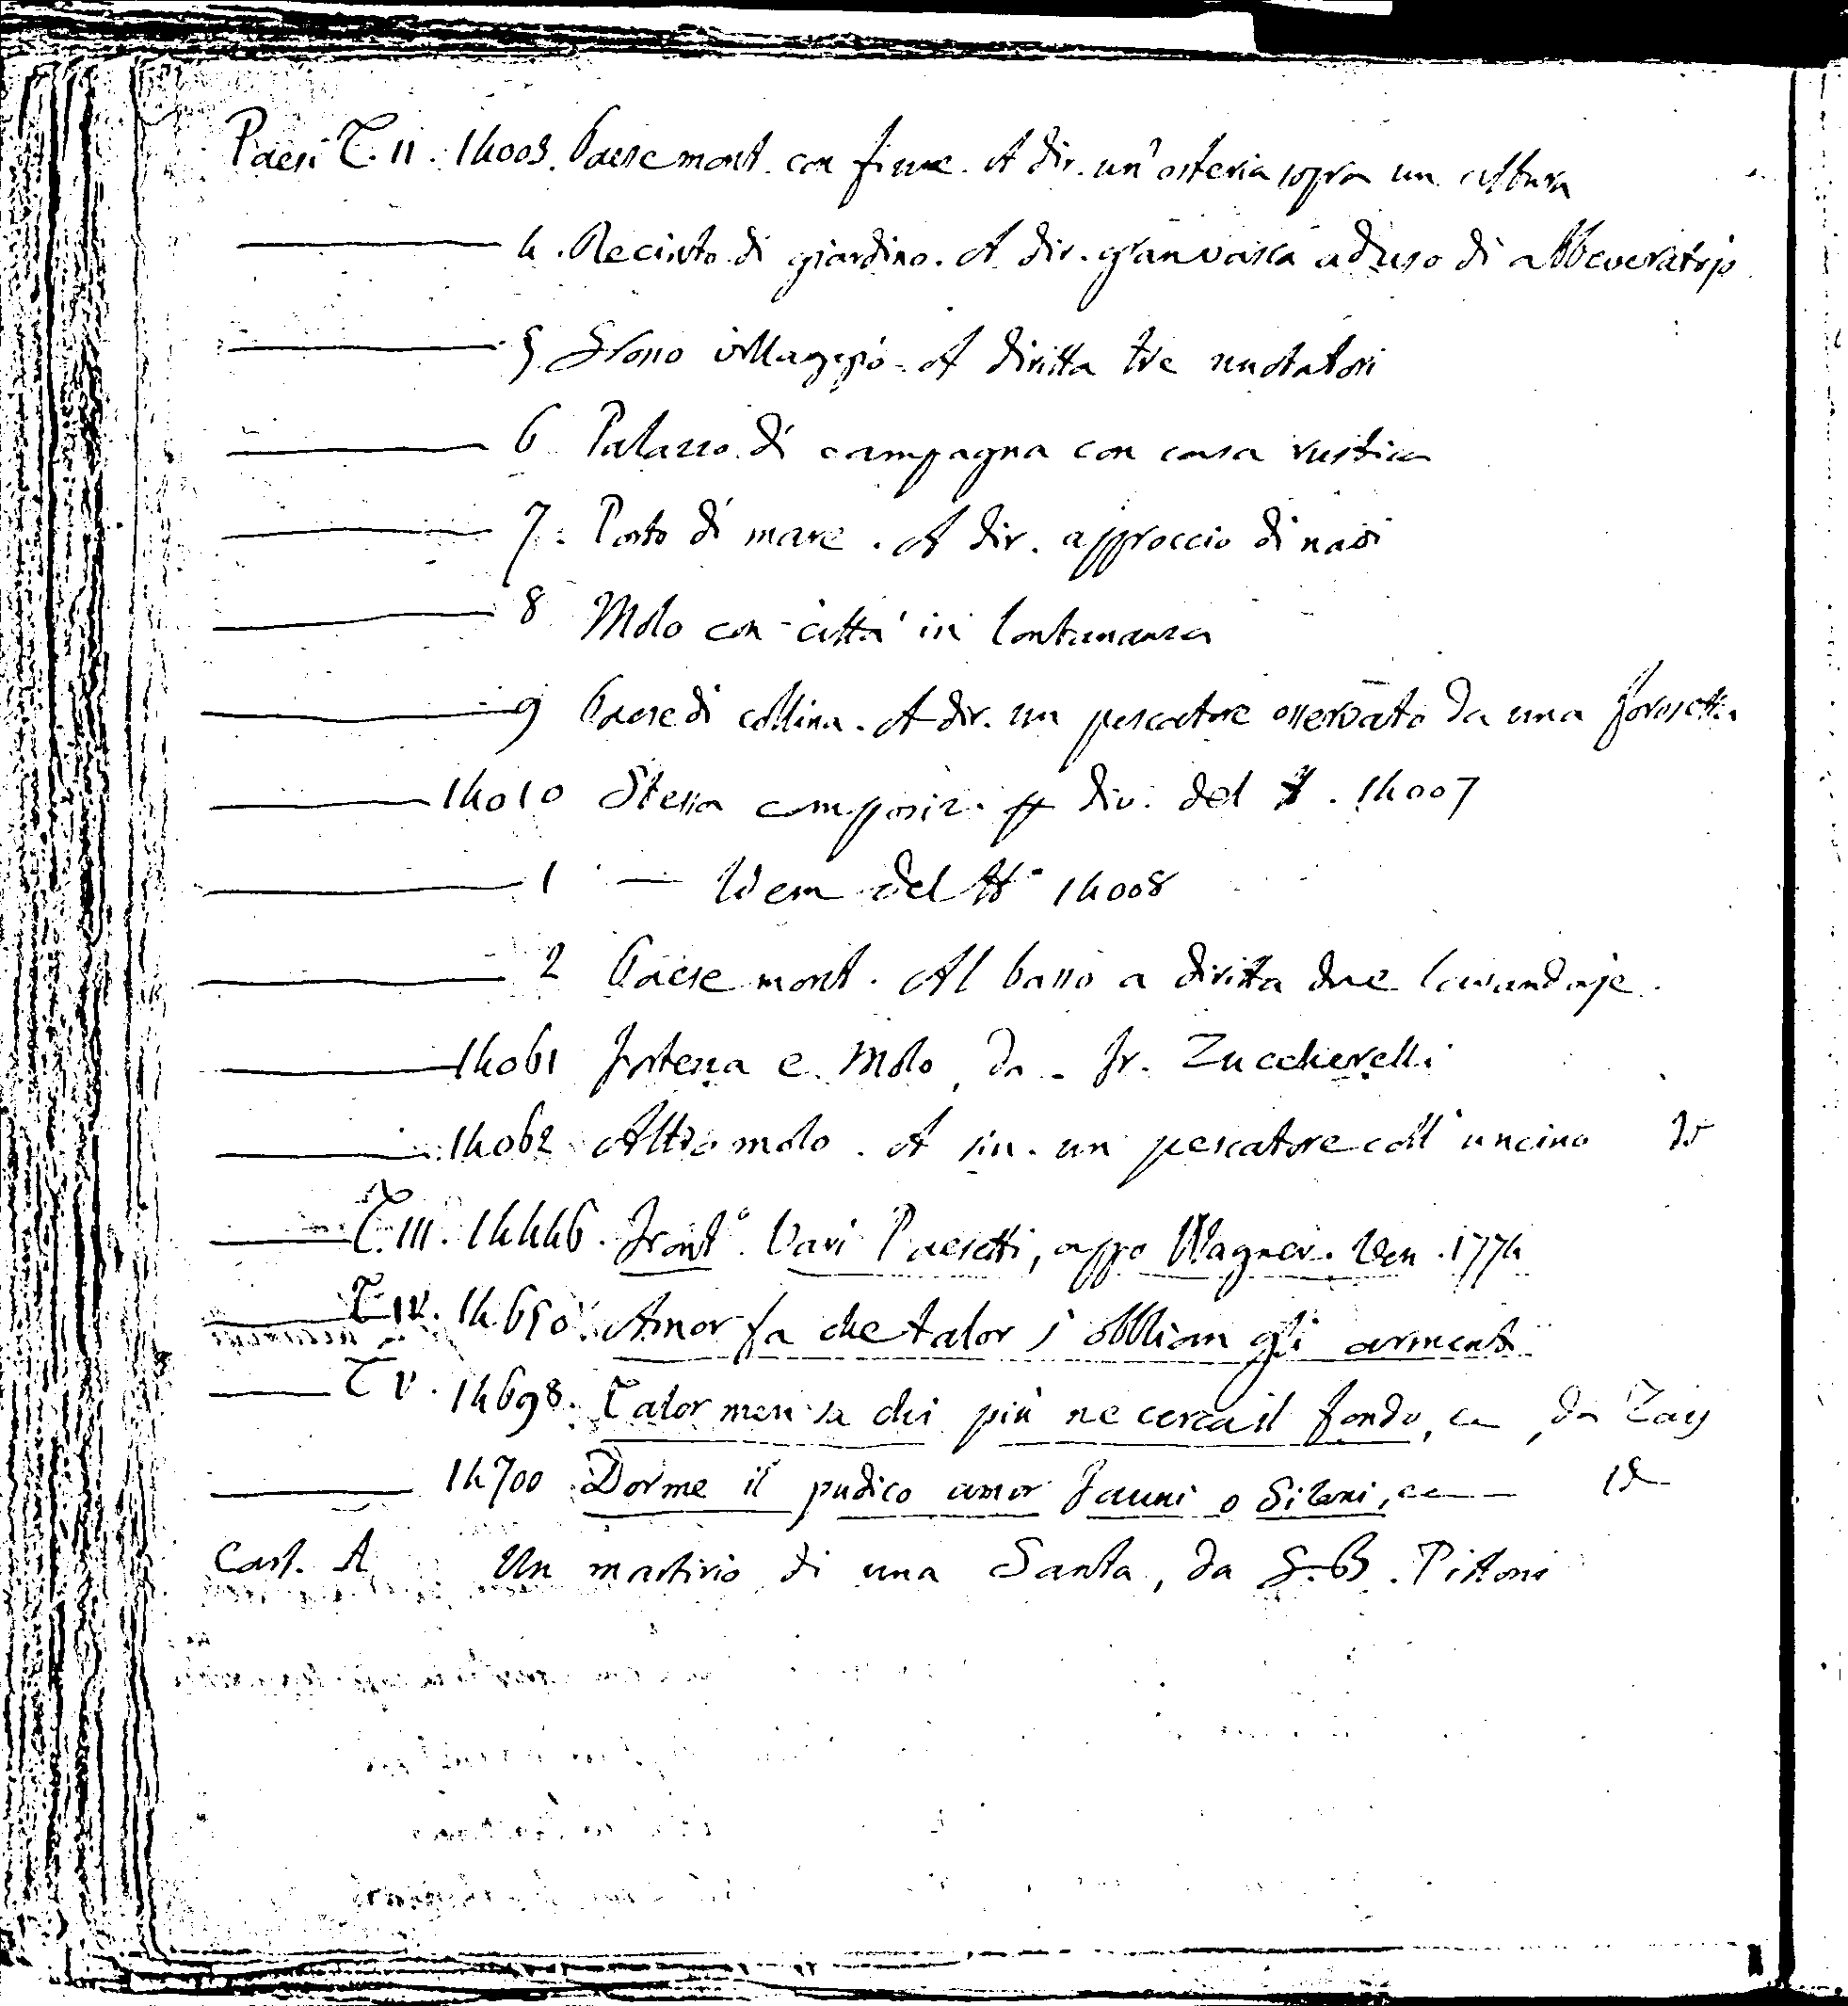 Paesi T. II. 14003. Paese mont. con fiume. A dir. un' osteria sopra un altura
——— 4. Recinto di giardino. A dir. gran vasca ad uso di abbeveratojo
——— 5 Grosso villaggio. A diritta tre nuotatori
——— 6 Palazzo di campagna con casa rustica
——— 7. Porto di mare. A dir. approccio di navi
——— 8 Molo con città in lontananza
——— 9 Paese di collina. A dir. un pescatore osservato da una forosetta
——— 14010 Stessa composiz. div. del N. 14007
——— 1 — Idem del N° 14008
——— 2 Paese mont. Al basso a diritta due lavandaje.
——— 14061 Fortezza e Molo, da Fr. Zuccherelli
——— 14062 Altro molo. A sin. un pescatore coll' uncino id
——— T. III. 14446. Front°. Vari Paesetti, appo Wagner. Ven. 1774
——— T IV. 14650. Amor fa che talor s' obblian gli armenti
——— T V. 14698. Talor men sa chi più ne cerca il fondo, ec, da Zais
——— 14700 Dorme il pudico amor Fauni o Sileni, ec — id
Cart. A Un martirio di una Santa, da G. B. Pittoni